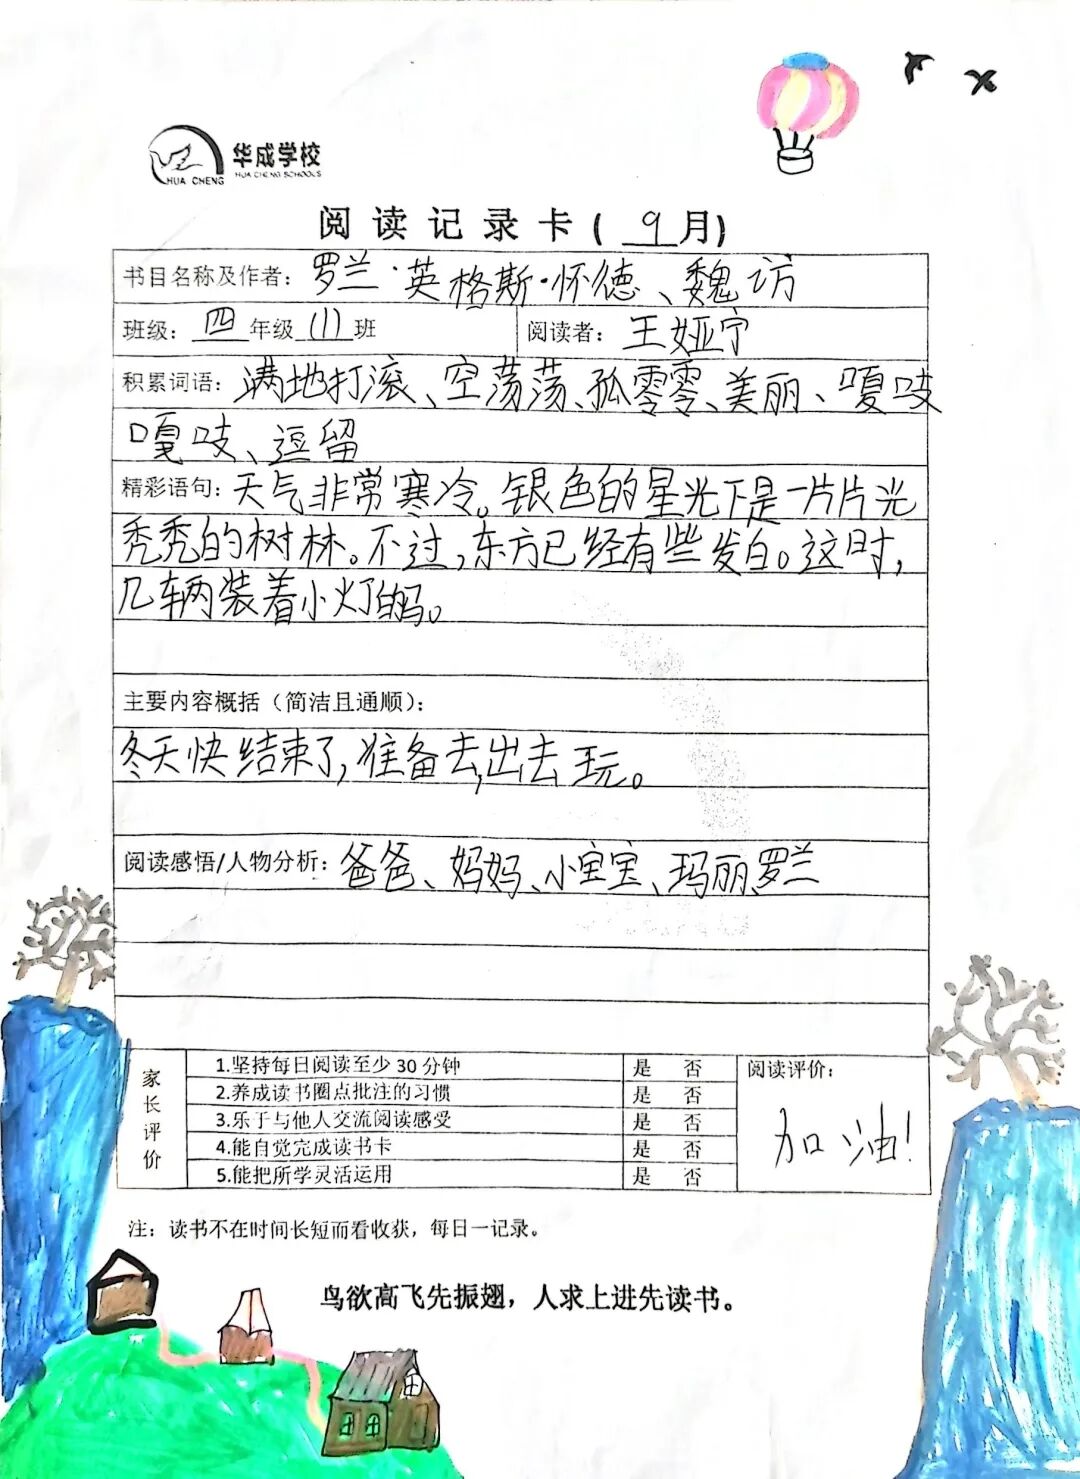 华成学校
HUA CHENG SCHOOLS
HUA CHENG
阅读记录卡(9月)
书目名称及作者:罗兰·英格斯·怀德、魏访
班级:四年级(11)班 阅读者:王娅宁
积累词语:满地打滚、空荡荡、孤零零、美丽、嘎吱
嘎吱、逗留
精彩语句:天气非常寒冷。银色的星光下是一片片光
秃秃的树林。不过,东方已经有些发白。这时,
几辆装着小灯的吗。
主要内容概括(简洁且通顺):
冬天快结束了,准备去,出去玩。
阅读感悟/人物分析:爸爸、妈妈、小宝宝、玛丽、罗兰
家长评价
1.坚持每日阅读至少30分钟 是 否
2.养成读书圈点批注的习惯 是 否
3.乐于与他人交流阅读感受 是 否
4.能自觉完成读书卡 是 否
5.能把所学灵活运用 是 否
阅读评价:
加油!
注:读书不在时间长短而看收获,每日一记录。
鸟欲高飞先振翅,人求上进先读书。